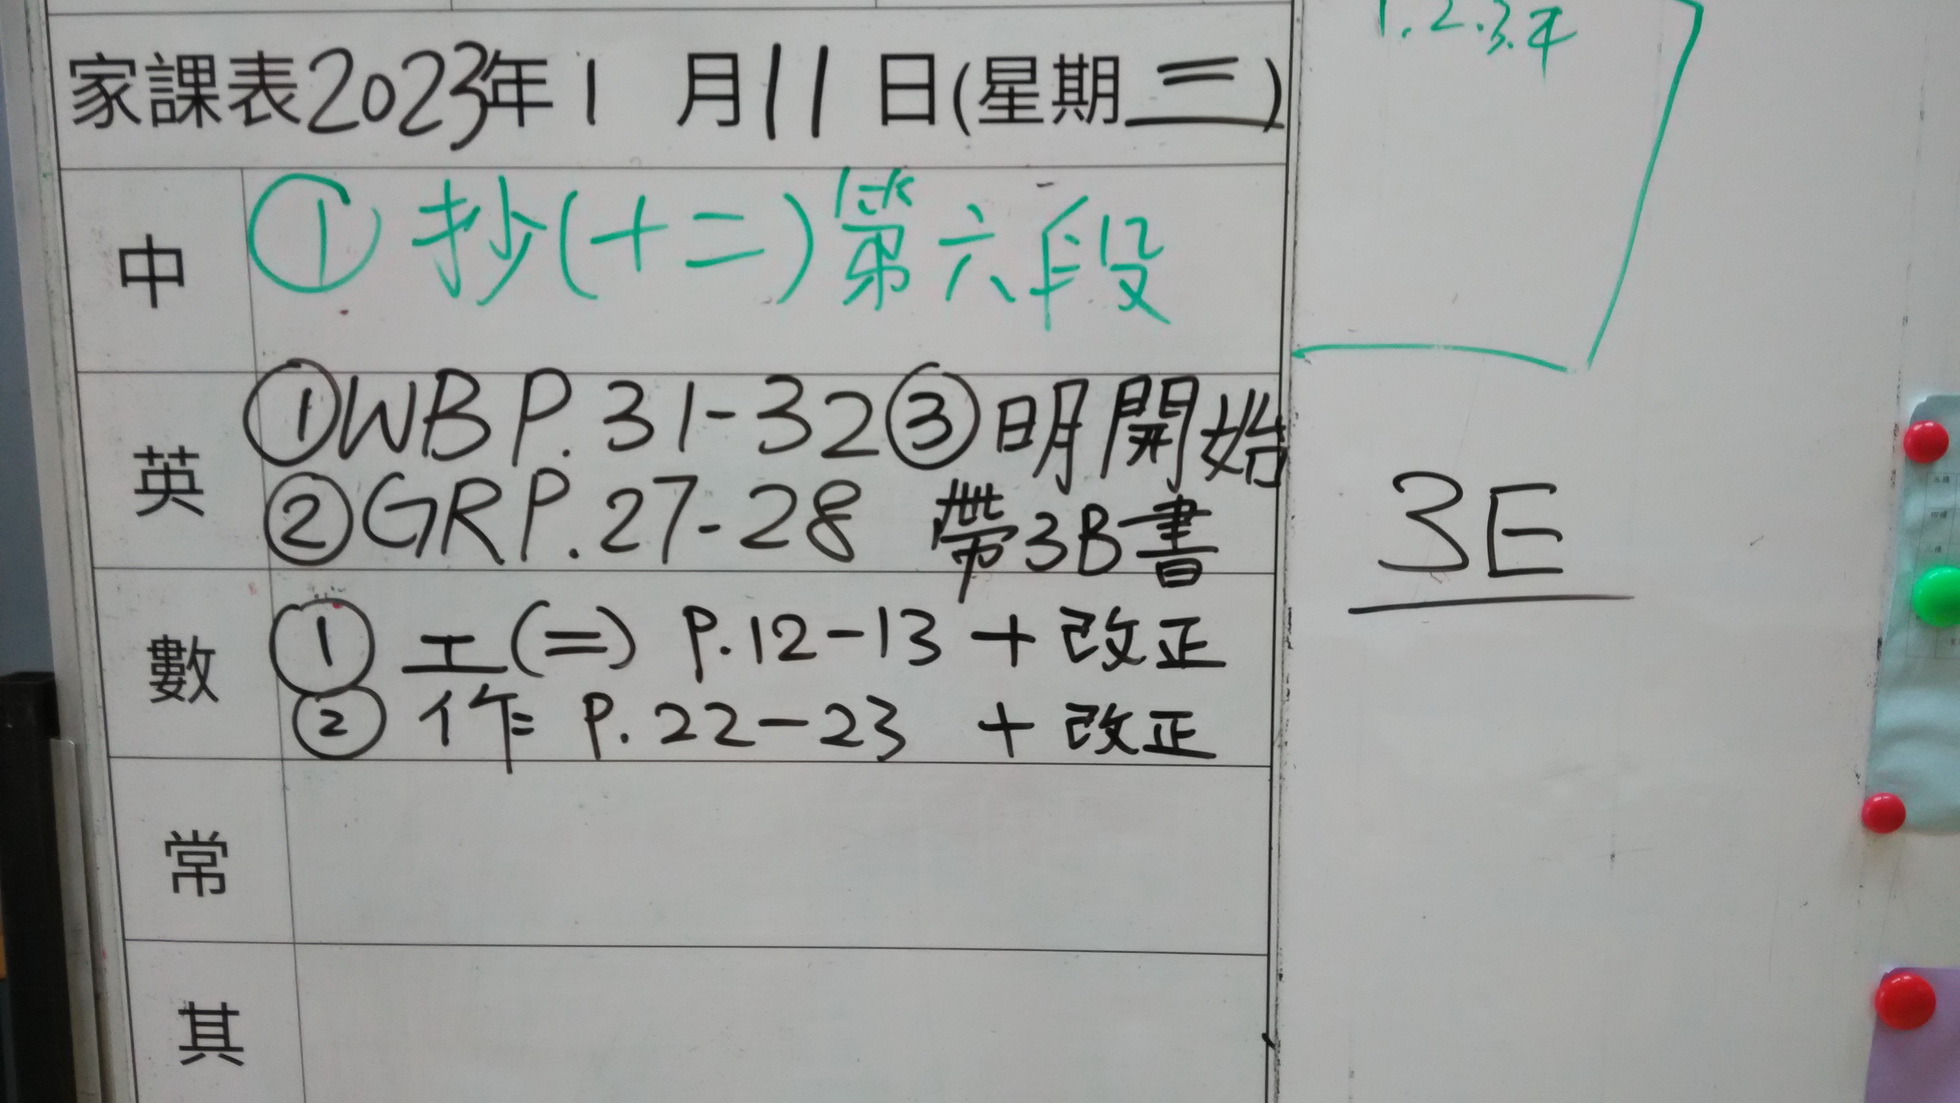 1.2.3.4
家課表2023年1月11日(星期三)
中
①抄(十二)第六段
英
①WB P.31-32 ③明開始
②GR P.27-28 帶3B書
數
① 工(二) P.12-13 + 改正
② 作 P.22-23 + 改正
常
其
3E